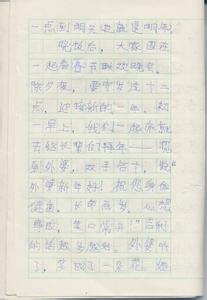 一点到明天也就是明年。
晚饭后，大家围在
一起看春节联欢晚会。
除夕夜，要守岁过十二
点，迎接新的一年。初
一早上，我们一起床就
去给长辈们拜年——
到外婆，双手合十，"
外婆新年好！祝您身体
健康，长命百岁，心想
事成，笑口常开！"
的话越多越好。外婆听
了，笑成了一朵花，